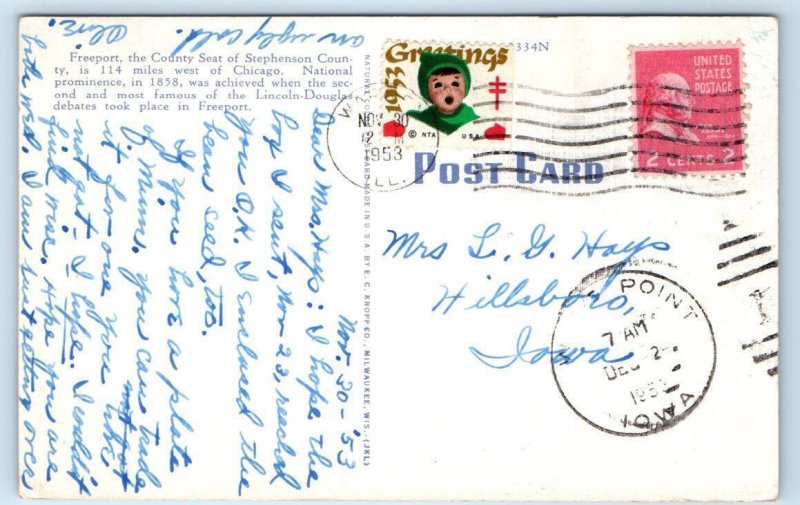 Freeport, the County Seat of Stephenson Coun-
ty, is 114 miles west of Chicago. National
prominence, in 1858, was achieved when the sec-
ond and most famous of the Lincoln-Douglas
debates took place in Freeport.
334N
Greetings
1953
© NTA U S A
UNITED
STATES
POSTAGE
ADAMS
2 CENTS 2
NOV 30
12 M
1953
ILL.
POST CARD
MADE IN U.S.A. BY E. C. KROPP CO., MILWAUKEE, WIS.-(JKL)
Mrs L. G. Hays
Hillsboro,
Iowa
POINT
7 AM
DEC 2
1953
IOWA
Nov. 30-'53
Dear Mrs. Hays: I hope the
box I sent, Nov 23, reached
you O.K. I enclosed the
bean seed, too.
If you have a plate
of Mums. you can trade
it for one you like
not got - I hope. I couldn't
find mine. Hope you are
both well. I am just getting over
an ugly cold.
Olive.